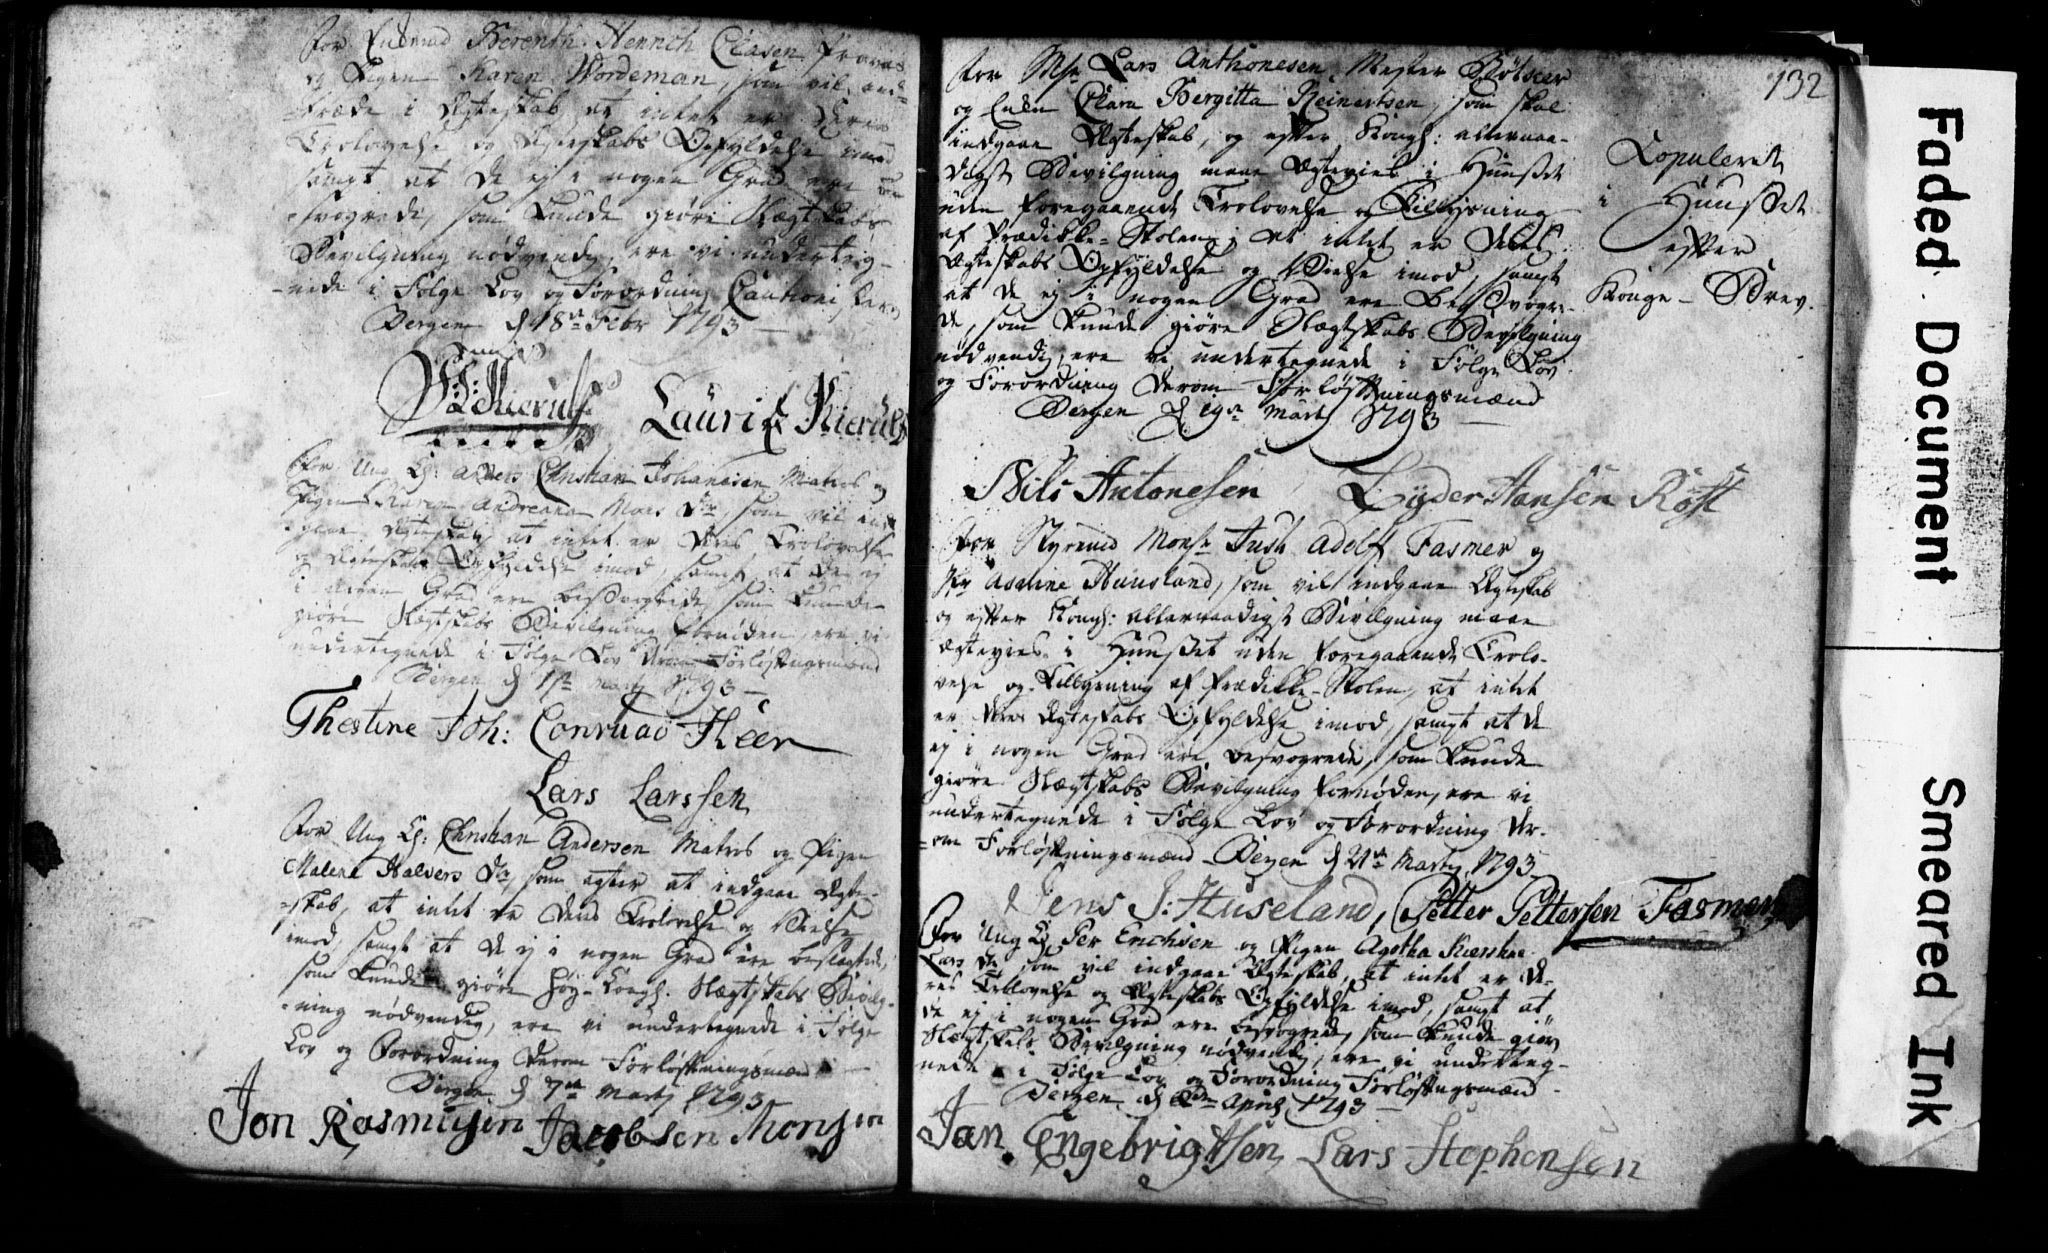 For Enkemd Berenth Hennich Clasen
og Pigen Karen Wordeman, som vil ind-
træde i Ægteskab, at intet er Deres
Trolovelse og Ægteskabs Opfyldelse imod
samt at de ej i nogen Grad ere be-
svogrede, som kunde giøre Slægtskabs
Bevilgning nødvendig, ere vi underteig-
-nede i Følge Lov og Forordning Cautioni
Bergen d 18de Febr 1793
Lauri Kierulf
For Ung K: Anders Christian Johannesen Matros og
Pigen Karen Andreana Mons Dr, som vil ind-
gaae Ægteskab, at intet er Deres Trolovelse
og Ægteskabs Opfyldelse imod, samt at de ej
i nogen Grad ere besvogrede, som kunde
giøre Slægtskabs Bevilgning fornøden, ere vi
undertegnede i Følge Lov Forløftningsmænd
Bergen d 1ste Martj 1793
Thestine Joh: Conruad Heer
Lars Larssen
For Ung K: Christian Andersen Matros og Pigen
Malene Halvers Dr, som agter at indgaae Ægte-
-skab, at intet er Deres Trolovelse og Vielse
imod, samt at de ej i nogen Grad ere beslægtede,
som kunde giøre Høy-Kongl. Slægtskabs Bevilg-
-ning nødvendig, ere vi undertegnede i Følge
Lov og Forordning derom Forløftningsmænd
Bergen d 7de Martj 1793
Jon Rasmusen Jacobsen Monsen
132
For Msr Lars Anthonesen, Mester Bødker
og Enken Clara Bergitta Reinertsen, som skal
indgaae Ægteskab, og efter Kongl: allernaa-
digst Bevilgning maae Ægtevies i Huuset
uden foregaaende Trolovelse og Tillysning
af Prædikke-Stolen, at intet er Deres
Ægteskabs Opfyldelse og Vielse imod, samt
at de ej i nogen Grad ere besvogre-
de, som kunde giøre Slægtskabs Bevilgning
nødvendig, ere vi undertegnede i Følge Lov
og Forordning derom Forløftningsmænd
Bergen d 19de Martj 1793
Copuleret
i Huuset
efter
Konge-Brev.
Nils Antonesen Lyder Hansen Røst
For Styrmd Monsr Just Adolf Fasmer og
Jfr Asseline Huusland, som vil indgaae Ægteskab
og efter Kongl: allernaadigst Bevilgning maae
Ægtevies i Huuset uden foregaaende Trolo-
velse og Tillysning af Prædikke-Stolen, at intet
er Deres Ægteskabs Opfyldelse imod, samt at de
ej i nogen Grad ere besvogrede, som kunde
giøre Slægtskabs Bevilgning fornøden, ere vi
undertegnede i Følge Lov og Forordning der-
-om Forløftningsmænd Bergen d 21de Martj 1793
Jens J: Huseland, Petter Pettersen Fasmer
For Ung K Per Erichsen og Pigen Agatha Kierstine
Lars Dr, som vil indgaae Ægteskab, at intet er De-
res Trolovelse og Ægteskabs Opfyldelse imod, samt at
de ej i nogen Grad ere besvogrede, som kunde giøre
Slægtskabs Bevilgning nødvendig, ere vi underteg-
nede i Følge Lov og Forordning Forløftningsmænd
Bergen d 2den April 1793
Jan Engebrigtsen Lars Stephensen
Faded Document
Smeared Ink